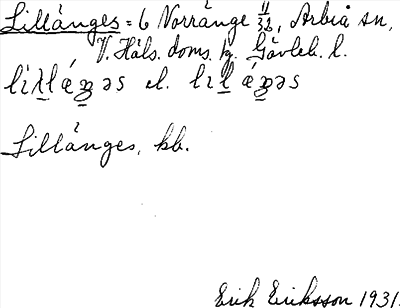 Lillänges = 6 Norränge 11/32, Arbrå sn,
V. Häls. doms. hg. Gävleb. l.
el.
Lillänges, kb.
Erik Eriksson 1931.